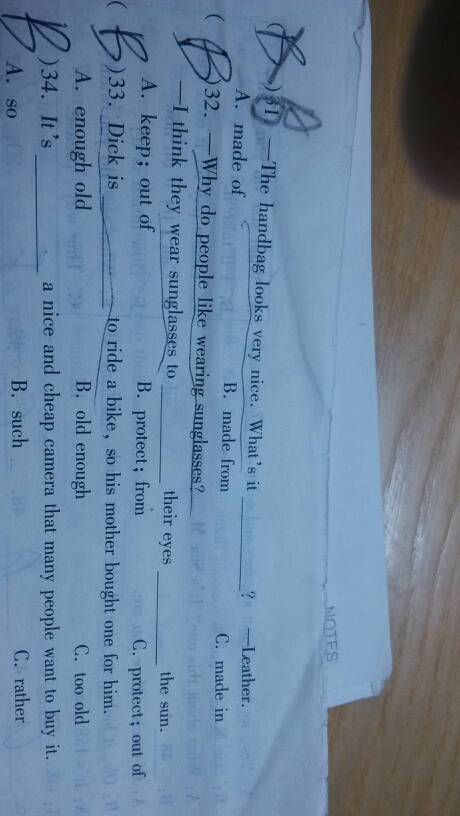 ( B )31. —The handbag looks very nice. What's it ________? —Leather.
A. made of B. made from C. made in
( B )32. —Why do people like wearing sunglasses?
—I think they wear sunglasses to ________ their eyes ________ the sun.
A. keep; out of B. protect; from C. protect; out of
( B )33. Dick is ________ to ride a bike, so his mother bought one for him.
A. enough old B. old enough C. too old
( B )34. It's ________ a nice and cheap camera that many people want to buy it.
A. so B. such C. rather
NOTES